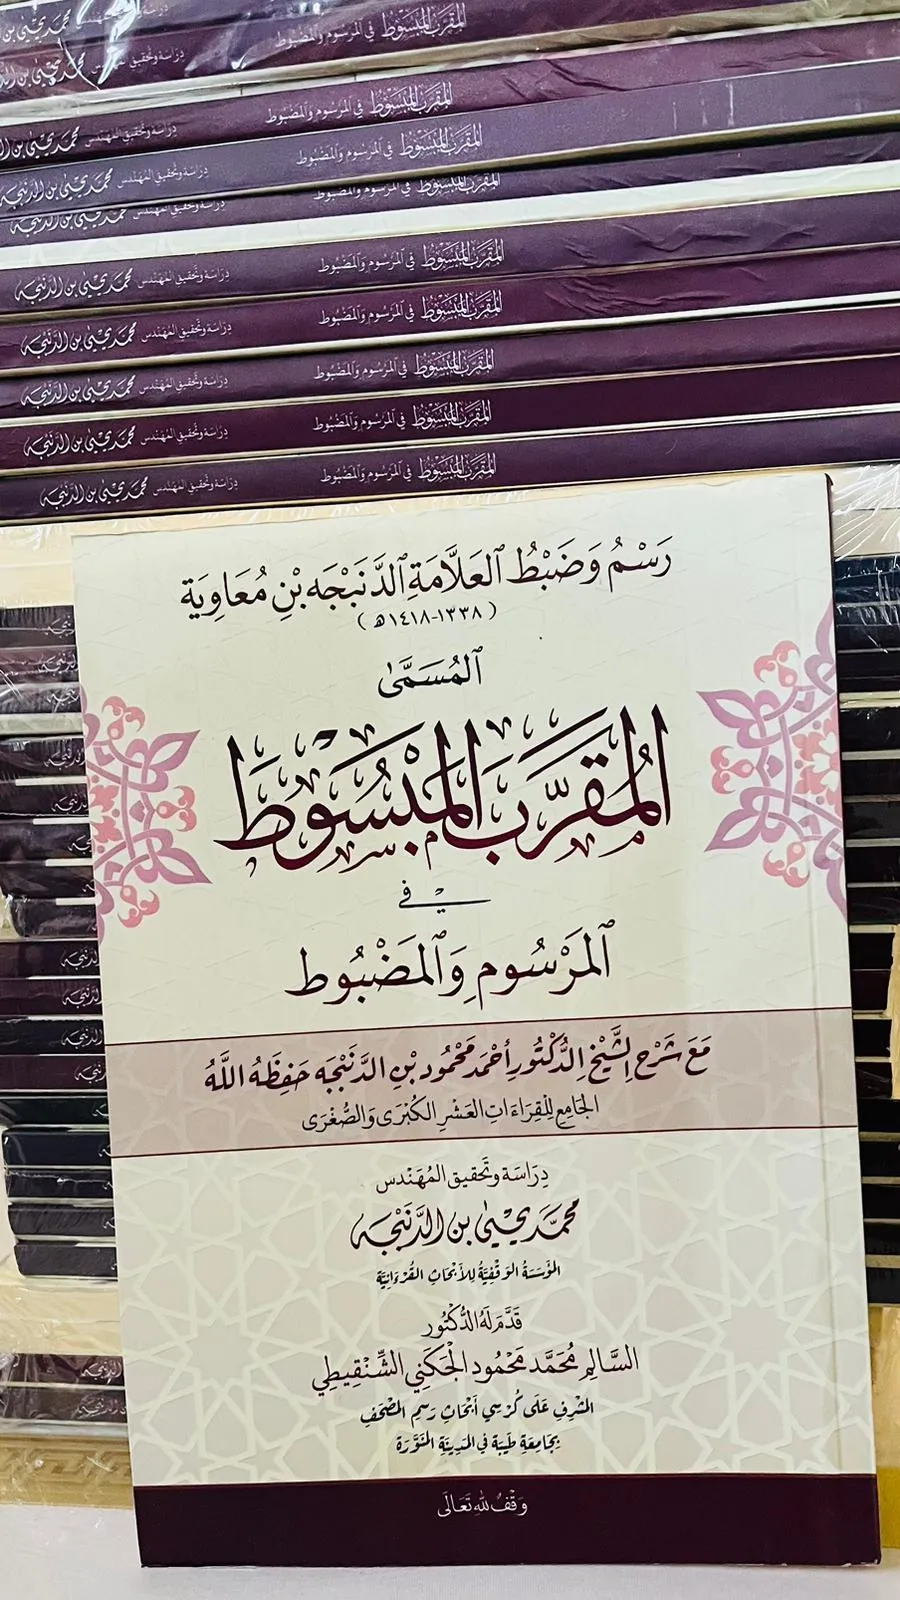 المقرب المبسوط في المرسوم والمضبوط دراسة وتحقيق المهندس محمد يحيى بن الدنبجه
المقرب المبسوط في المرسوم والمضبوط دراسة وتحقيق المهندس محمد يحيى بن الدنبجه
المقرب المبسوط في المرسوم والمضبوط دراسة وتحقيق المهندس محمد يحيى بن الدنبجه
المقرب المبسوط في المرسوم والمضبوط دراسة وتحقيق المهندس محمد يحيى بن الدنبجه
المقرب المبسوط في المرسوم والمضبوط دراسة وتحقيق المهندس محمد يحيى بن الدنبجه
المقرب المبسوط في المرسوم والمضبوط دراسة وتحقيق المهندس محمد يحيى بن الدنبجه
المقرب المبسوط في المرسوم والمضبوط دراسة وتحقيق المهندس محمد يحيى بن الدنبجه
المقرب المبسوط في المرسوم والمضبوط دراسة وتحقيق المهندس محمد يحيى بن الدنبجه
المقرب المبسوط في المرسوم والمضبوط دراسة وتحقيق المهندس محمد يحيى بن الدنبجه
رَسْمُ وَضَبْطُ ٱلعَلَّامَةِ ٱلدَّنَبْجَه بْنِ مُعَاوِيَة
(١٣٣٨-١٤١٨ه)
ٱلمُسَمَّىٰ
المُقَرَّبَ المَبْسُوطَ
في
ٱلمَرْسُومِ وَٱلمَضْبُوط
مَعَ شَرْحِ الشَّيْخِ الدُّكْتُورِ أَحْمَد مَحْمُود بْنِ الدَّنَبْجَه حَفِظَهُ اللَّهُ
الجَامِعِ لِلْقِرَاءَاتِ العَشْرِ الكُبْرَى وَالصُّغْرَى
دِرَاسَة وتَحَقيق المُهَنْدس
محمَّد يحْيىٰ بن الدَّنَبْجَه
المُؤَسَّسَةُ الوَقْفِيَّةُ لِلأَبْحَاثِ القُرْءَانِيَّة
قَدَّمَ لَهُ الدُّكْتُور
السَّالِم مُحَمَّد مَحْمُود الجَكَنِي الشِّنْقِيطِي
المُشْرِفِ عَلَى كُرْسِي أَبْحَاثِ رَسْمِ المُصْحَفِ
بِجَامِعَةِ طَيْبَة فِي المَدِينَةِ المُنَوَّرَة
وَقْفٌ لله تَعَالَى